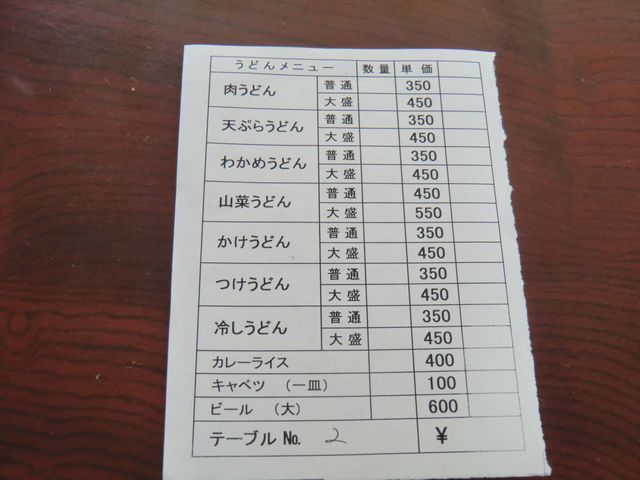 うどんメニュー 数量 単価
肉うどん 普通 350
大盛 450
天ぷらうどん 普通 350
大盛 450
わかめうどん 普通 350
大盛 450
山菜うどん 普通 450
大盛 550
かけうどん 普通 350
大盛 450
つけうどん 普通 350
大盛 450
冷しうどん 普通 350
大盛 450
カレーライス 400
キャベツ （一皿） 100
ビール （大） 600
テーブル No. 2 ¥